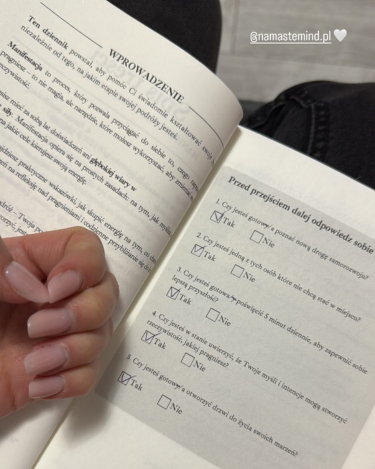 @namastemind.pl
WPROWADZENIE
Ten dziennik powstał, aby pomóc Ci świadomie kształtować
niezależnie od tego, na jakim etapie swojej podróży jesteś.
Manifestacja to proces, który pozwala przyciągać do siebie to, czego
pragniesz – to nie magia, ale narzędzie, które możesz wykorzystywać, aby
głębokiej wiary w
siły. Manifestacja opiera się na prostych zasadach: na tym, jak myślisz,
praktyczne wskazówki, jak skupić energię na tym, co
Przed przejściem dalej odpowiedz sobie
1. Czy jesteś gotowa poznać nową drogę samorozwoju?
Tak Nie
2. Czy jesteś jedną z tych osób które nie chcą stać w miejscu?
Tak Nie
3. Czy jesteś gotowa poświęcić 5 minut dziennie, aby zapewnić sobie
lepszą przyszłość?
Tak Nie
4. Czy jesteś w stanie uwierzyć, że Twoje myśli i intencje mogą stworzyć
rzeczywistość, jakiej pragniesz?
Tak Nie
5. Czy jesteś gotowa otworzyć drzwi do życia swoich marzeń?
Tak Nie